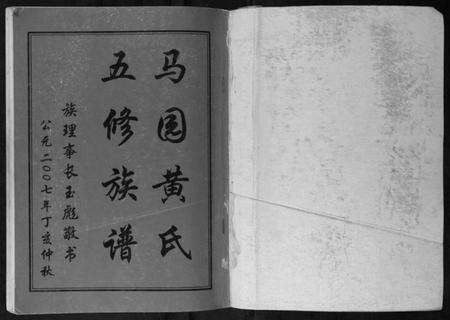 马园黄氏
五修族谱
族理事长玉彪敬书
公元二〇〇七年丁亥仲秋